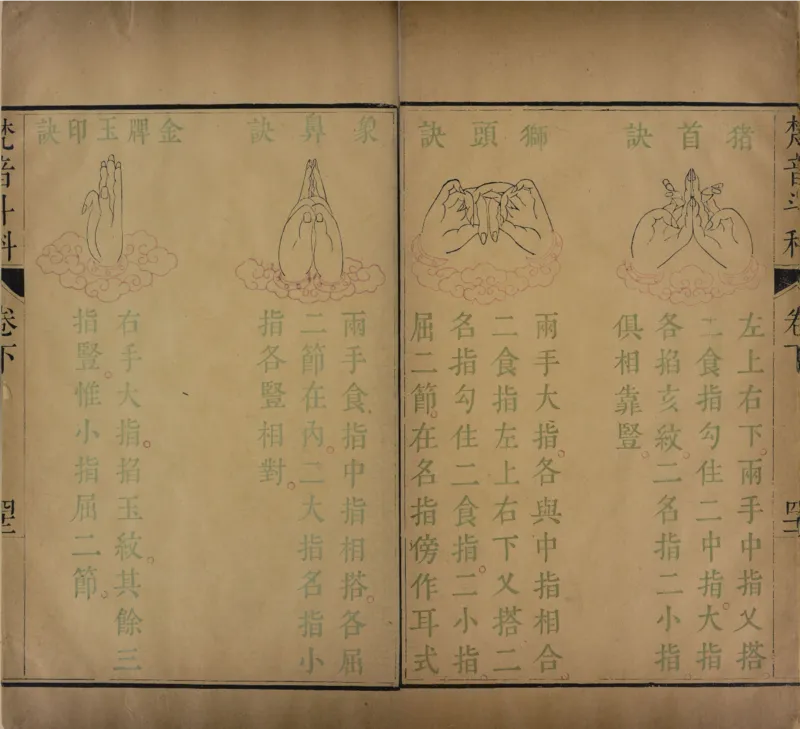 梵音斗科
卷下
猪首訣
左上右下兩手中指乂搭
二食指勾住二中指大指
各掐亥紋二名指二小指
俱相靠豎
獅頭訣
兩手大指各與中指相合
二食指左上右下乂搭二
名指勾住二食指二小指
屈二節在名指傍作耳式
象鼻訣
兩手食指中指相搭各屈
二節在內二大指名指小
指各豎相對
金牌玉印訣
右手大指掐玉紋其餘三
指豎惟小指屈二節
梵音斗科
卷下